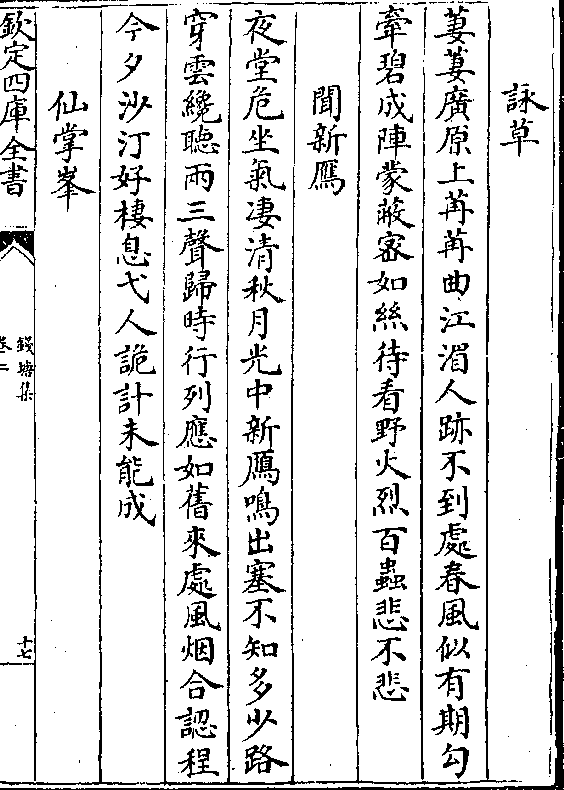 詠草
萋萋廣原上苒苒曲江湄人跡不到處春風似有期勾
牽碧成陣蒙蔽密如絲待看野火烈百蟲悲不悲
聞新鴈
夜堂危坐氣凄清秋月光中新鴈鳴出塞不知多少路
穿雲纔聽兩三聲歸時行列應如舊來處風烟合認程
今夕沙汀好棲息弋人詭計未能成
仙掌峯
欽定四庫全書
錢塘集
卷二
十七